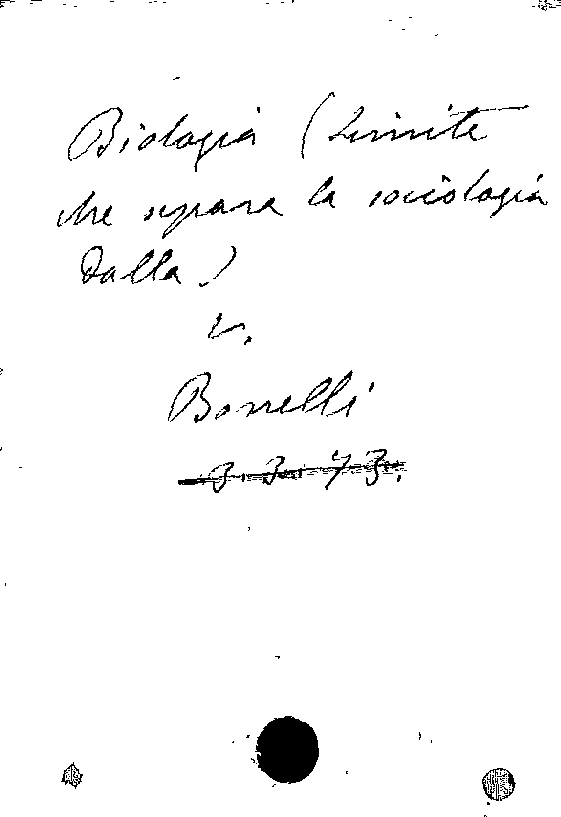 Biologia (Limite
che separa la sociologia
dalla)
v.
Borrelli
3.3.73.